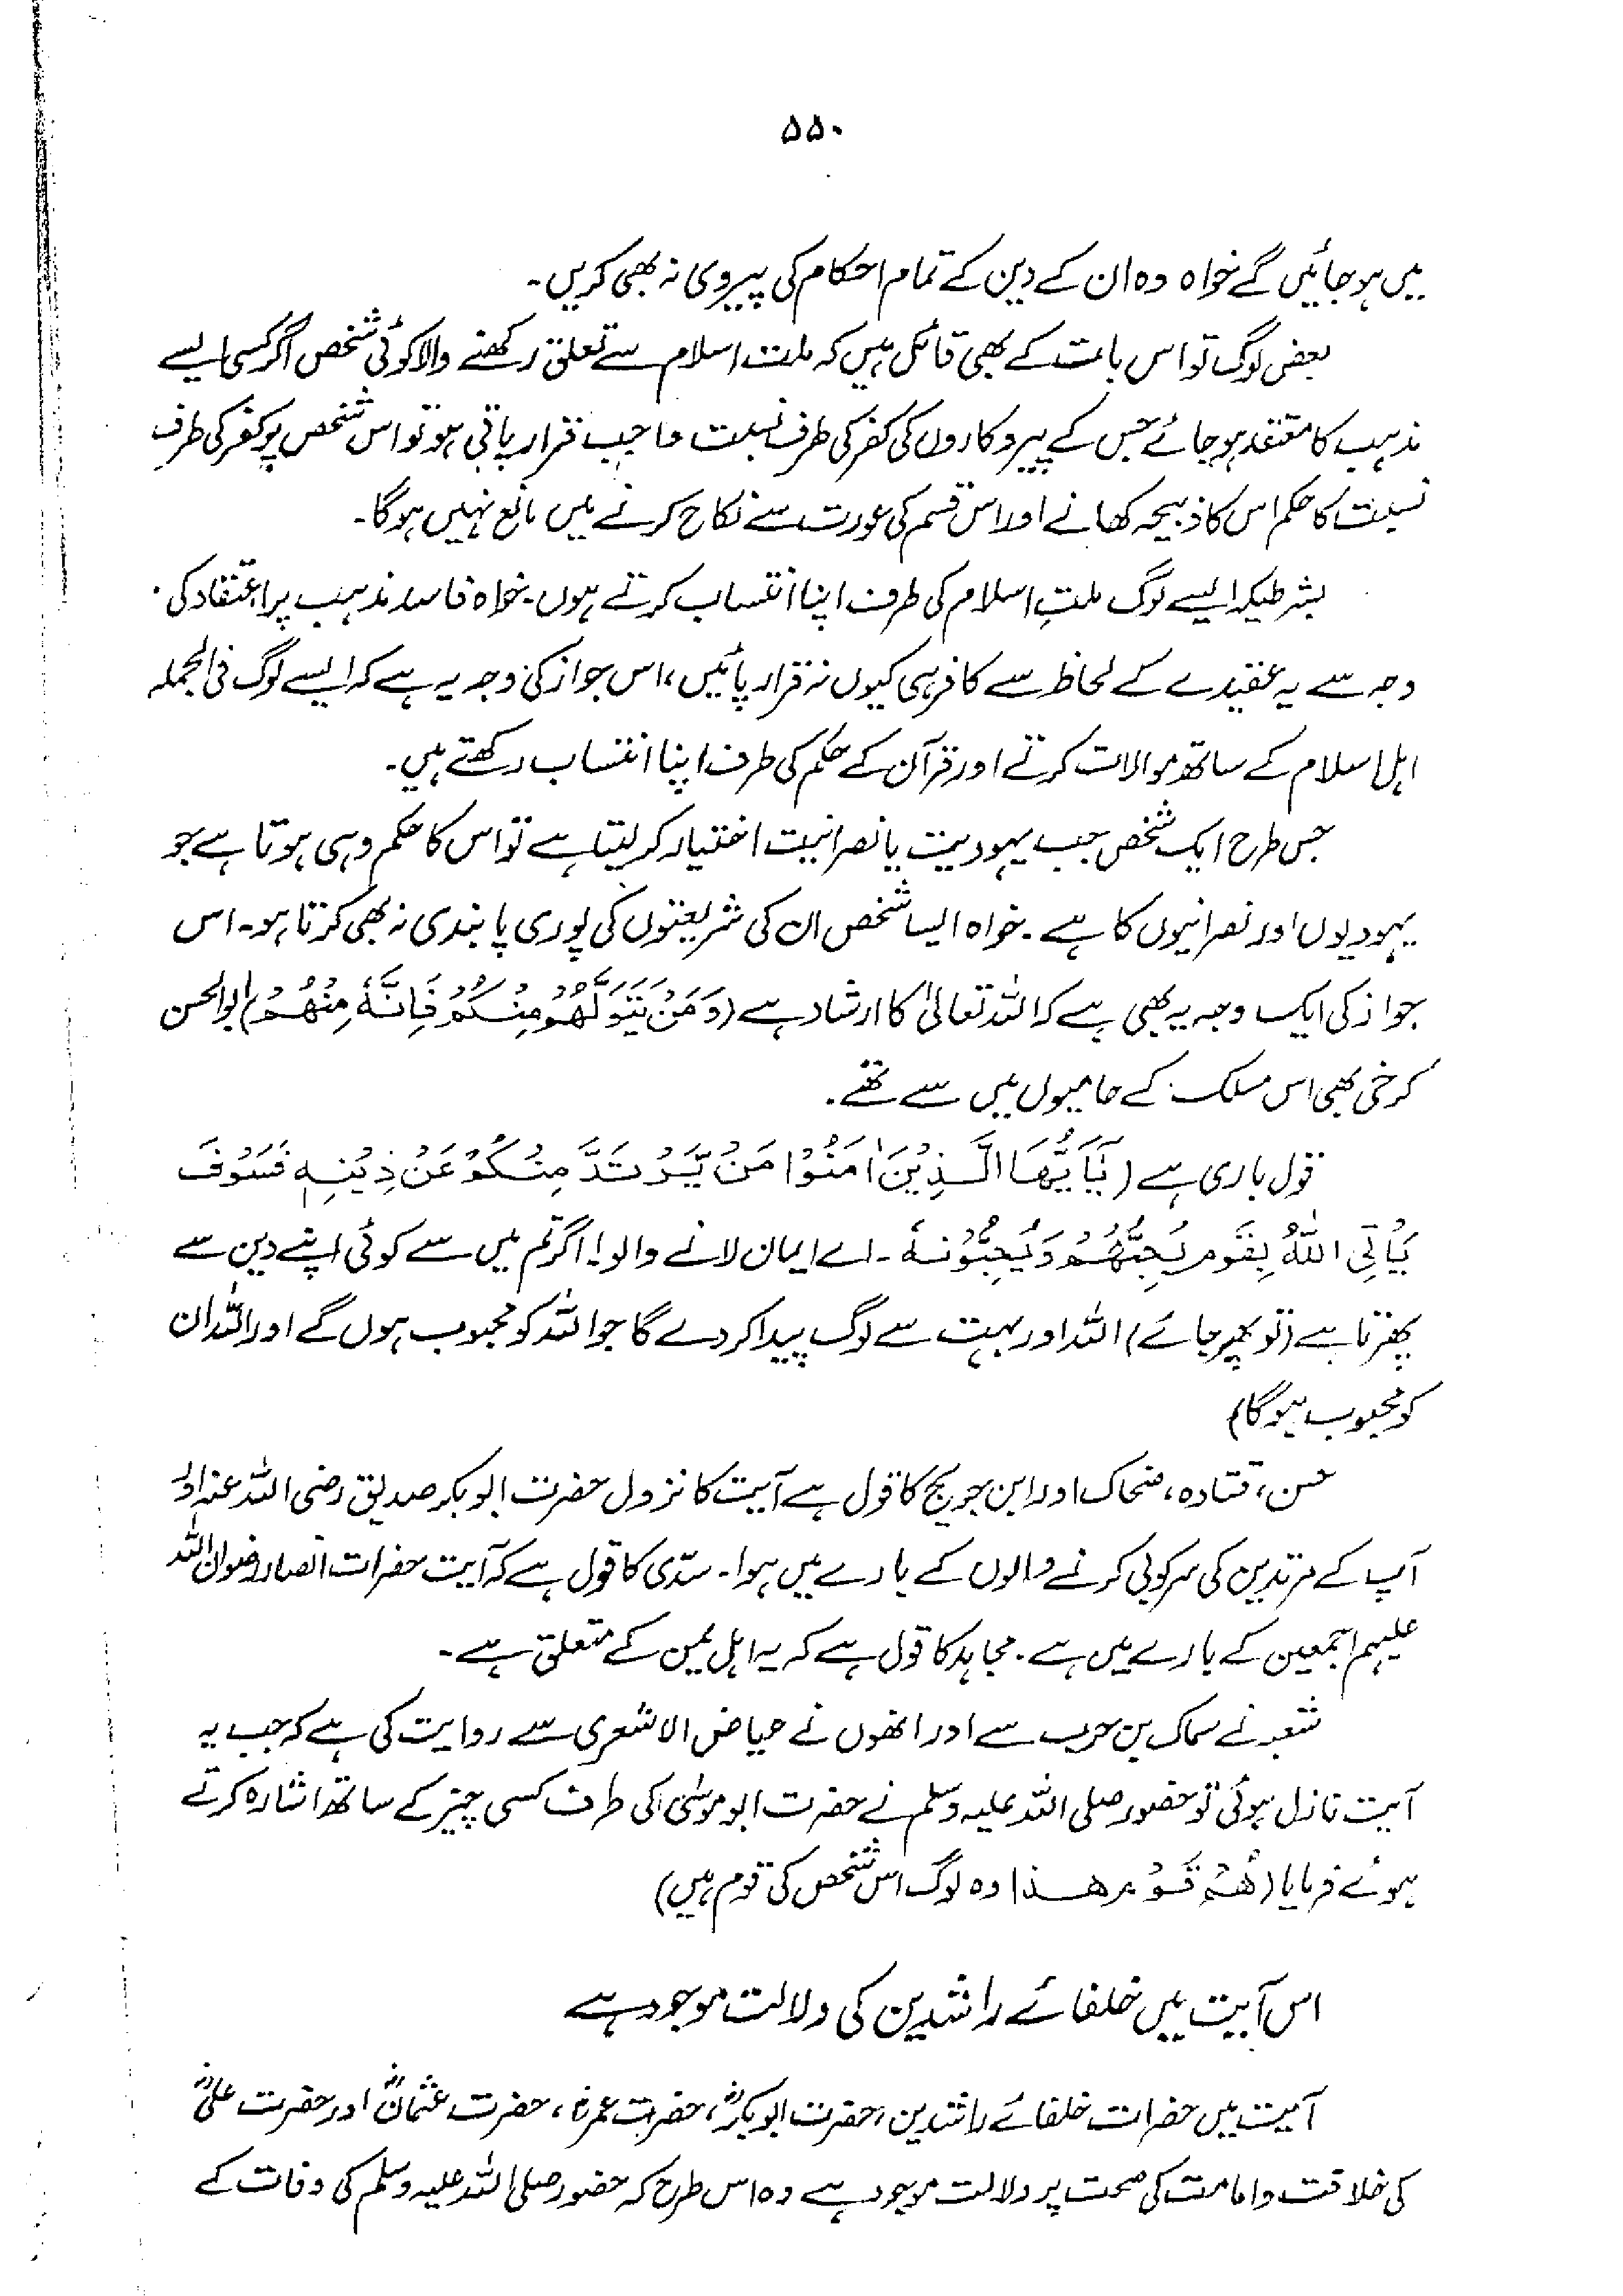 ۵۵۰
میں ہو جائیں گے خواہ وہ ان کے دین کے تمام احکام کی پیروی نہ بھی کریں۔
بعض لوگ تو اس بات کے بھی قائل ہیں کہ ملت اسلام سے تعلق رکھنے والا کوئی شخص اگر کسی ایسے
مذہب کا معتقد ہو جائے جس کے پیروکاروں کی کفر کی طرف نسبت واجب قرار پاتی ہو تو اس شخص پر کفر کی طرف
نسبت کا حکم اس کا ذبیحہ کھانے اور اس قسم کی عورت سے نکاح کرنے میں مانع نہیں ہوگا۔
بشرطیکہ ایسے لوگ ملتِ اسلام کی طرف اپنا انتساب کرتے ہوں۔ خواہ فاسد مذہب پر اعتقاد کی
وجہ سے یہ عقیدے کے لحاظ سے کافر ہی کیوں نہ قرار پائیں، اس جواز کی وجہ یہ ہے کہ ایسے لوگ فی الجملہ
اہل اسلام کے ساتھ موالات کرتے اور قرآن کے حکم کی طرف اپنا انتساب رکھتے ہیں۔
جس طرح ایک شخص جب یہودیت یا نصرانیت اختیار کر لیتا ہے تو اس کا حکم وہی ہوتا ہے جو
یہودیوں اور نصرانیوں کا ہے۔ خواہ ایسا شخص ان کی شریعتوں کی پوری پابندی نہ بھی کرتا ہو۔ اس
جواز کی ایک وجہ یہ بھی ہے کہ اللہ تعالیٰ کا ارشاد ہے (وَمَنْ يَّتَوَلَّهُمْ مِنْكُمْ فَاِنَّهٗ مِنْهُمْ) ابوالحسن
کرخی بھی اس مسلک کے حامیوں میں سے تھے۔
قول باری ہے (يٰٓاَيُّهَا الَّذِيْنَ اٰمَنُوْا مَنْ يَّرْتَدَّ مِنْكُمْ عَنْ دِيْنِهٖ فَسَوْفَ
يَاْتِي اللّٰهُ بِقَوْمٍ يُحِبُّهُمْ وَيُحِبُّوْنَهٗ۔ اے ایمان لانے والو! اگر تم میں سے کوئی اپنے دین سے
پھرتا ہے (تو پھر جائے) اللہ اور بہت سے لوگ پیدا کر دے گا جو اللہ کو محبوب ہوں گے اور اللہ ان
کو محبوب ہوگا)
حسن، قتادہ، ضحاک اور ابن جریج کا قول ہے آیت کا نزول حضرت ابوبکر صدیق رضی اللہ عنہ اور
آپ کے مرتدین کی سرکوبی کرنے والوں کے بارے میں ہوا۔ سدّی کا قول ہے کہ آیت حضرات انصار رضوان اللہ
علیہم اجمعین کے بارے میں ہے۔ مجاہد کا قول ہے کہ یہ اہل یمن کے متعلق ہے۔
شعبہ نے سماک بن حرب سے اور انھوں نے عیاض الاشعری سے روایت کی ہے کہ جب یہ
آیت نازل ہوئی تو حضور صلی اللہ علیہ وسلم نے حضرت ابوموسیٰ کی طرف کسی چیز کے ساتھ اشارہ کرتے
ہوئے فرمایا (هُمْ قَوْمُ هذا وہ لوگ اس شخص کی قوم ہیں)
اس آیت میں خلفائے راشدین کی دلالت موجود ہے
آیت میں حضرات خلفائے راشدین، حضرت ابوبکرؓ، حضرت عمرؓ، حضرت عثمانؓ اور حضرت علیؓ
کی خلافت و امامت کی صحت پر دلالت موجود ہے وہ اس طرح کہ حضور صلی اللہ علیہ وسلم کی وفات کے